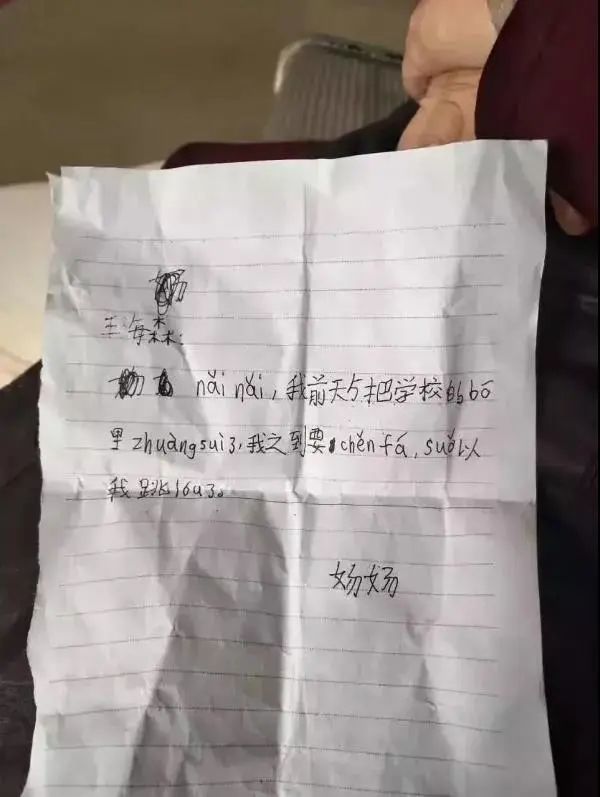 王海森:
nǎi nǎi，我前天与把学校的bō
里zhuàngsuì了，我之到要chěnfá，suǒ以
我跳lou了。